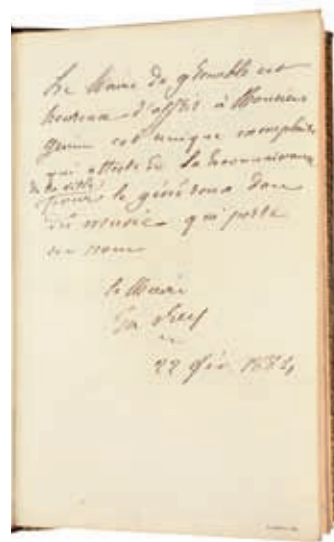 Le Maire de Grenoble est
heureux d'offrir à Monsieur
Genin cet unique exemplaire
qui atteste de la reconnaissance
de la ville
pour le généreux don
du musée qui porte
son nom
le Maire
Ed Rey
22 1884